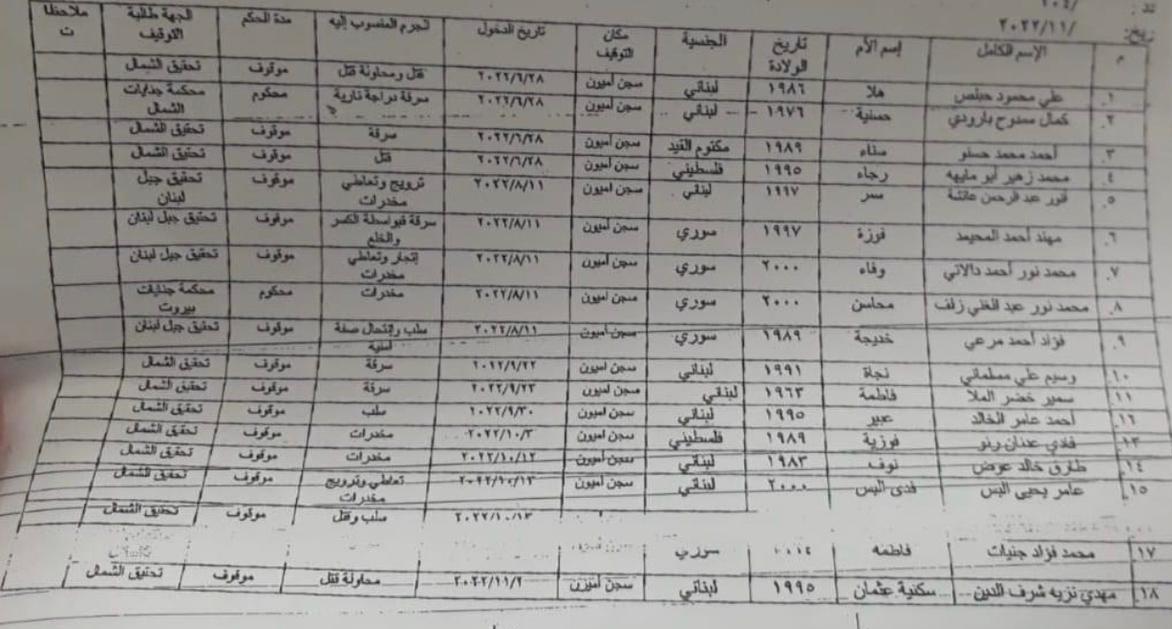 ١٠٤/
٢٠٢٢/١١/
م الإسم الكامل إسم الأم تاريخ الولادة الجنسية مكان التوقيف تاريخ الدخول الجرم المنسوب إليه مدة الحكم الجهة طالبة التوقيف ملاحظات
١. علي محمود حبلص هلا ١٩٨٦ لبناني سجن أميون ٢٠٢٢/٦/٢٨ قتل ومحاولة قتل موقوف تحقيق الشمال
٢. كمال ممدوح بارودي حسنية ١٩٧٦ لبناني سجن أميون ٢٠٢٢/٦/٢٨ سرقة دراجة نارية محكوم محكمة جنايات الشمال
٣. أحمد محمد حسنو سناء ١٩٨٩ مكتوم القيد سجن أميون ٢٠٢٢/٦/٢٨ سرقة موقوف تحقيق الشمال
٤. محمد زهير أبو مايهه رجاء ١٩٩٥ فلسطيني سجن أميون ٢٠٢٢/٦/٢٨ قتل موقوف تحقيق الشمال
٥. أنور عبد الرحمن عائشة سمر ١٩٩٧ لبناني سجن أميون ٢٠٢٢/٨/١١ ترويج وتعاطي مخدرات موقوف تحقيق جبل لبنان
٦. مهند أحمد المحيمد فوزة ١٩٩٧ سوري سجن أميون ٢٠٢٢/٨/١١ سرقة بواسطة الكسر والخلع موقوف تحقيق جبل لبنان
٧. محمد نور أحمد دالاتي وفاء ٢٠٠٠ سوري سجن أميون ٢٠٢٢/٨/١١ إتجار وتعاطي مخدرات موقوف تحقيق جبل لبنان
٨. محمد نور عبد الغني زلف محاسن ٢٠٠٠ سوري سجن أميون ٢٠٢٢/٨/١١ مخدرات محكوم محكمة جنايات بيروت
٩. فؤاد أحمد مرعي خديجة ١٩٨٩ سوري سجن أميون ٢٠٢٢/٨/١١ سلب وإنتحال صفة أمنية موقوف تحقيق جبل لبنان
١٠. وسيم علي مسلماني نجاة ١٩٩١ لبناني سجن أميون ٢٠٢٢/٩/٢٢ سرقة موقوف تحقيق الشمال
١١ سمير خضر الملا فاطمة ١٩٦٣ لبناني سجن أميون ٢٠٢٢/٩/٢٣ سرقة موقوف تحقيق الشمال
١٢. أحمد عامر الخالد عبير ١٩٩٥ لبناني سجن أميون ٢٠٢٢/٩/٣٠ سلب موقوف تحقيق الشمال
١٣. فادي عدنان رنو فوزية ١٩٨٩ فلسطيني سجن أميون ٢٠٢٢/١٠/٣ مخدرات موقوف تحقيق الشمال
١٤. طارق خالد عوض نوف ١٩٨٣ لبناني سجن أميون ٢٠٢٢/١٠/١٢ مخدرات موقوف تحقيق الشمال
١٥. عامر يحيى البس فدى البس ٢٠٠٠ لبناني سجن أميون ٢٠٢٢/١٠/١٣ تعاطي وترويج مخدرات موقوف تحقيق الشمال
٢٠٢٢/١٠/١٣ سلب وقتل موقوف تحقيق الشمال
١٧ محمد فؤاد جنيات فاطمه سوري
١٨. مهدي نزيه شرف الدين سكنية عثمان ١٩٩٥ لبناني سجن أميون ٢٠٢٢/١١/٢ محاولة قتل موقوف تحقيق الشمال